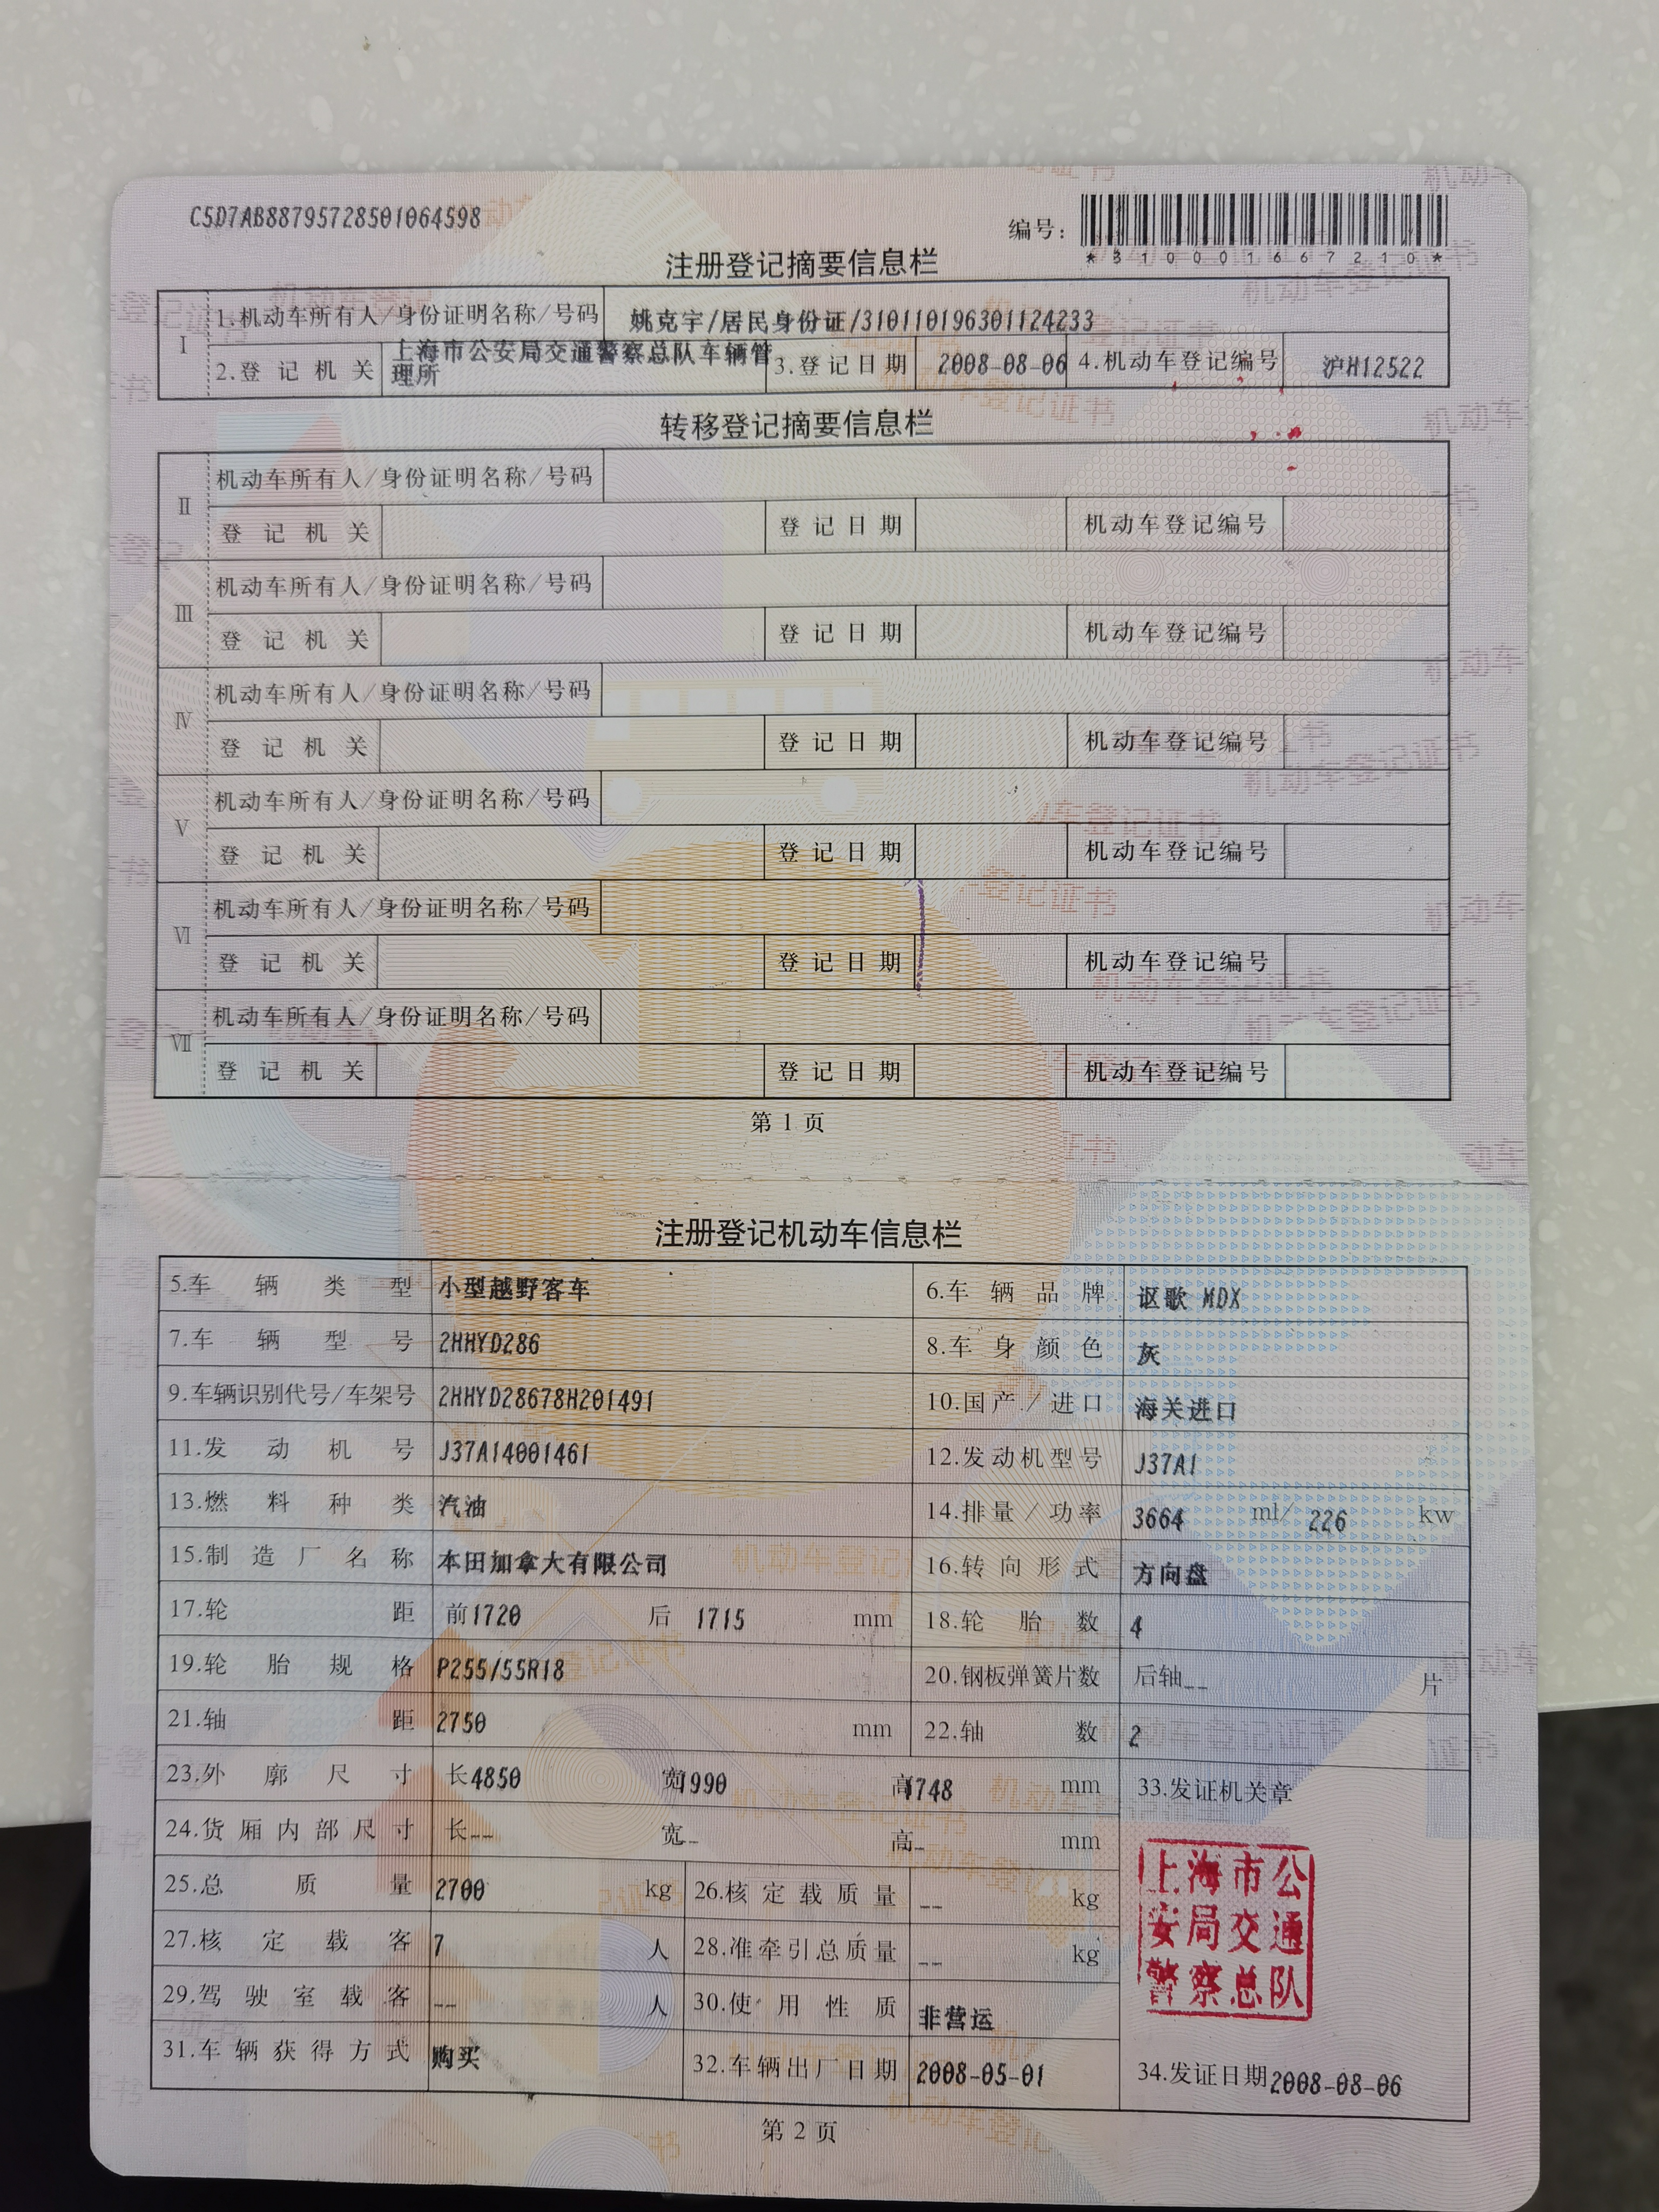 C5D7AB88795728501064598
编号：
*310001667210*
注册登记摘要信息栏
I
1.机动车所有人/身份证明名称/号码 姚克宇/居民身份证/310110196301124233
2.登记机关 上海市公安局交通警察总队车辆管理所 3.登记日期 2008-08-06 4.机动车登记编号 沪H12522
转移登记摘要信息栏
II
机动车所有人/身份证明名称/号码
登记机关 登记日期 机动车登记编号
III
机动车所有人/身份证明名称/号码
登记机关 登记日期 机动车登记编号
IV
机动车所有人/身份证明名称/号码
登记机关 登记日期 机动车登记编号
V
机动车所有人/身份证明名称/号码
登记机关 登记日期 机动车登记编号
VI
机动车所有人/身份证明名称/号码
登记机关 登记日期 机动车登记编号
VII
机动车所有人/身份证明名称/号码
登记机关 登记日期 机动车登记编号
第1页
注册登记机动车信息栏
5.车辆类型 小型越野客车 6.车辆品牌 讴歌 MDX
7.车辆型号 2HHYD286 8.车身颜色 灰
9.车辆识别代号/车架号 2HHYD28678H201491 10.国产/进口 海关进口
11.发动机号 J37A14001461 12.发动机型号 J37A1
13.燃料种类 汽油 14.排量/功率 3664 ml/ 226 kw
15.制造厂名称 本田加拿大有限公司 16.转向形式 方向盘
17.轮距 前1720 后 1715 mm 18.轮胎数 4
19.轮胎规格 P255/55R18 20.钢板弹簧片数 后轴-- 片
21.轴距 2750 mm 22.轴数 2
23.外廓尺寸 长4850 宽1990 高1748 mm 33.发证机关章
24.货厢内部尺寸 长-- 宽-- 高-- mm
25.总质量 2700 kg 26.核定载质量 -- kg
27.核定载客 7 人 28.准牵引总质量 -- kg
29.驾驶室载客 -- 人 30.使用性质 非营运
31.车辆获得方式 购买 32.车辆出厂日期 2008-05-01 34.发证日期2008-08-06
上海市公
安局交通
警察总队
第2页